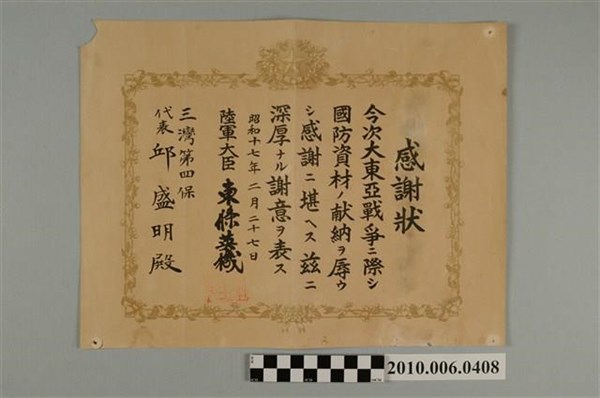 感謝狀
今次大東亞戰爭ニ際シ
國防資材ノ献納ヲ辱ウ
シ感謝ニ堪ヘス茲ニ
深厚ナル謝意ヲ表ス
昭和十七年二月二十七日
陸軍大臣 東條英機
三灣第四保
代表 邱盛明殿
2010.006.0408